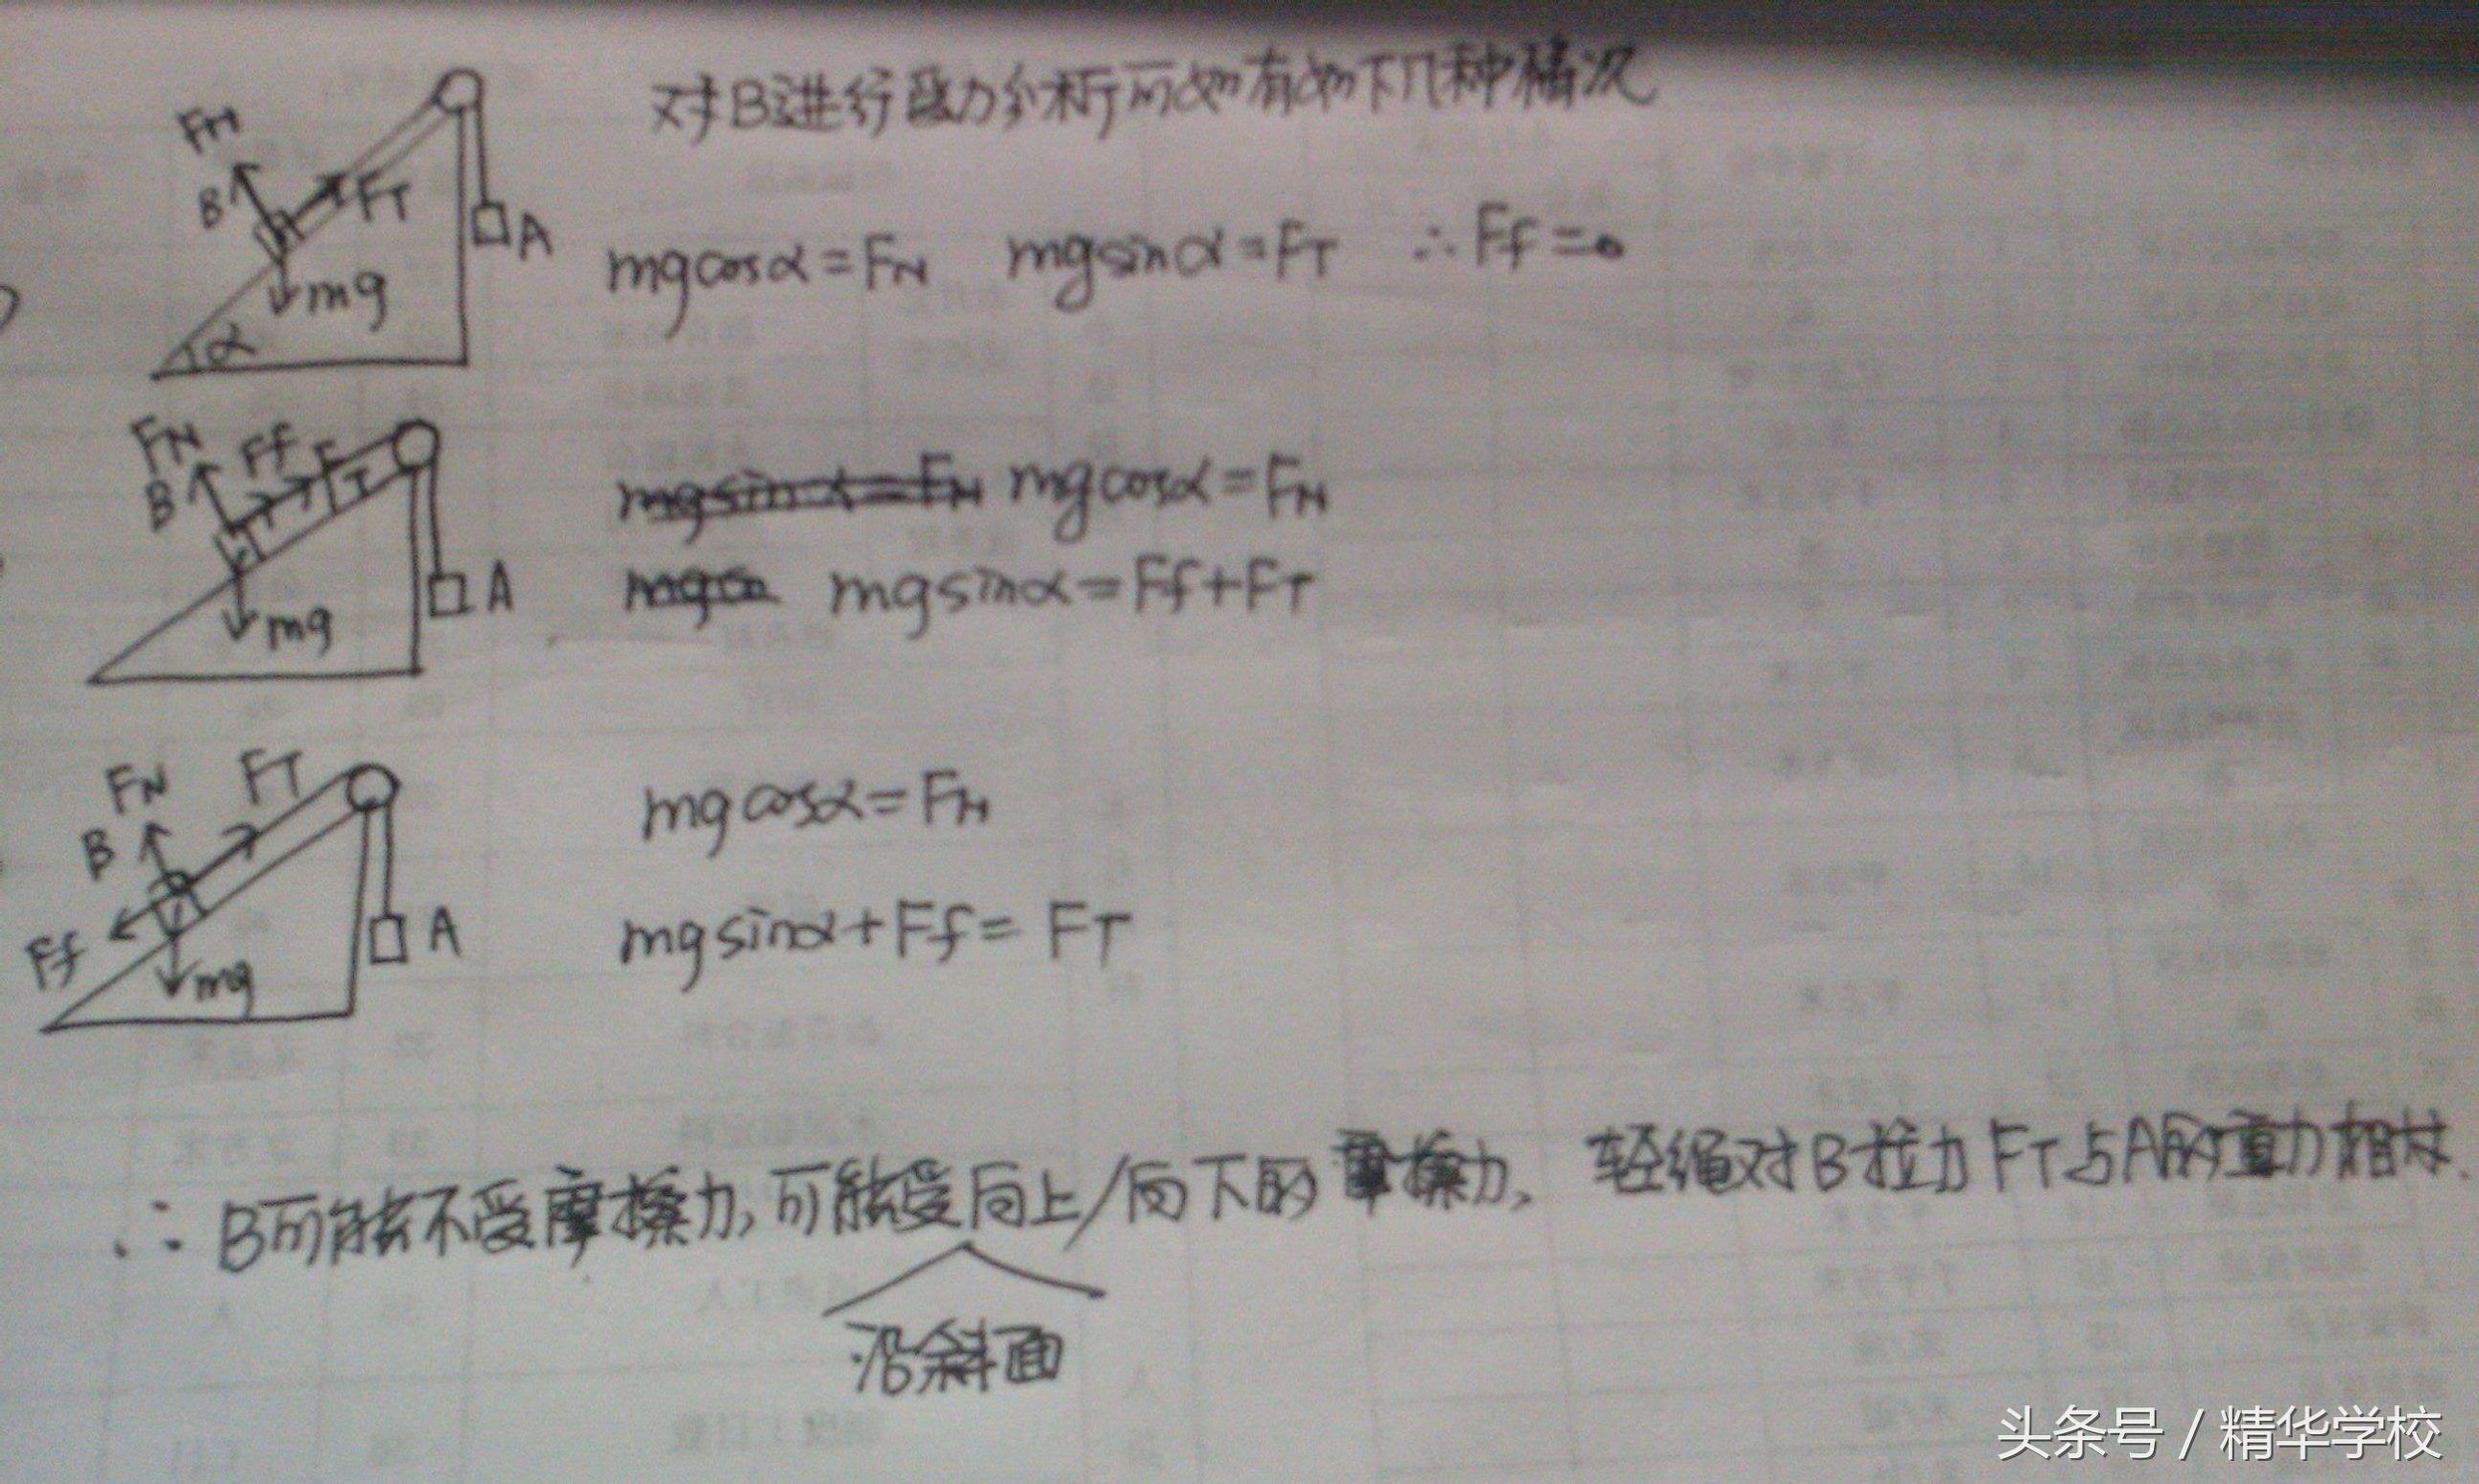 对B进行受力分析可知有如下几种情况
FN
B
FT
A
mg
α
mgcosα=FN mgsinα=FT ∴Ff=0
FN
Ff
FT
B
A
mg
mgsinα=FN mgcosα=FN
mgco mgsinα=Ff+FT
FN
FT
B
A
Ff
mg
mgcosα=FN
mgsinα+Ff=FT
∴B可能不受摩擦力,可能受向上/向下的摩擦力, 轻绳对B拉力FT与A的重力相
沿斜面
头条号 / 精华学校